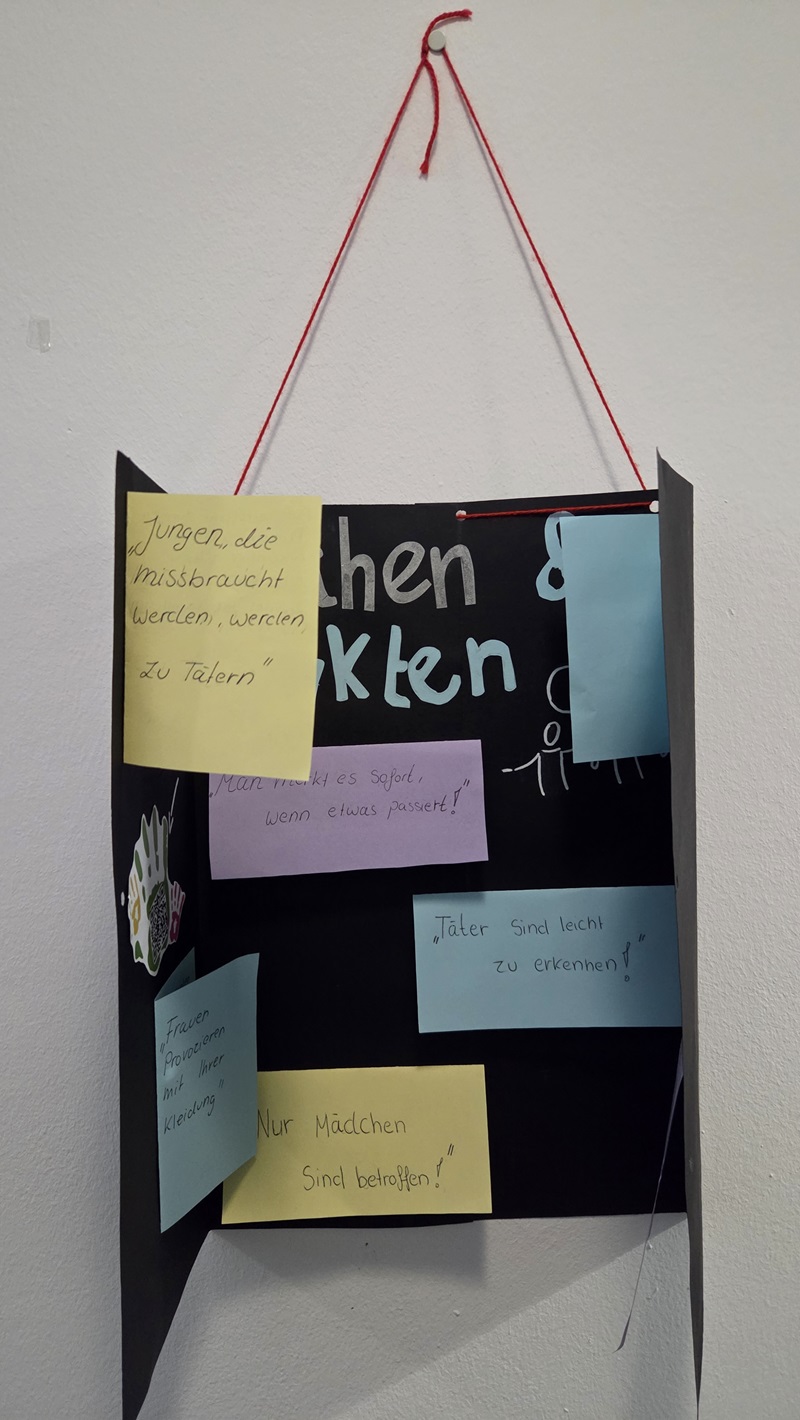 „Jungen, die
missbraucht
werden, werden
zu Tätern"
hen &
kten
„Man merkt es sofort,
wenn etwas passiert!"
„Täter sind leicht
zu erkennen!"
„Frauen
Provozieren
mit Ihrer
Kleidung"
Nur Mädchen
sind betroffen!"